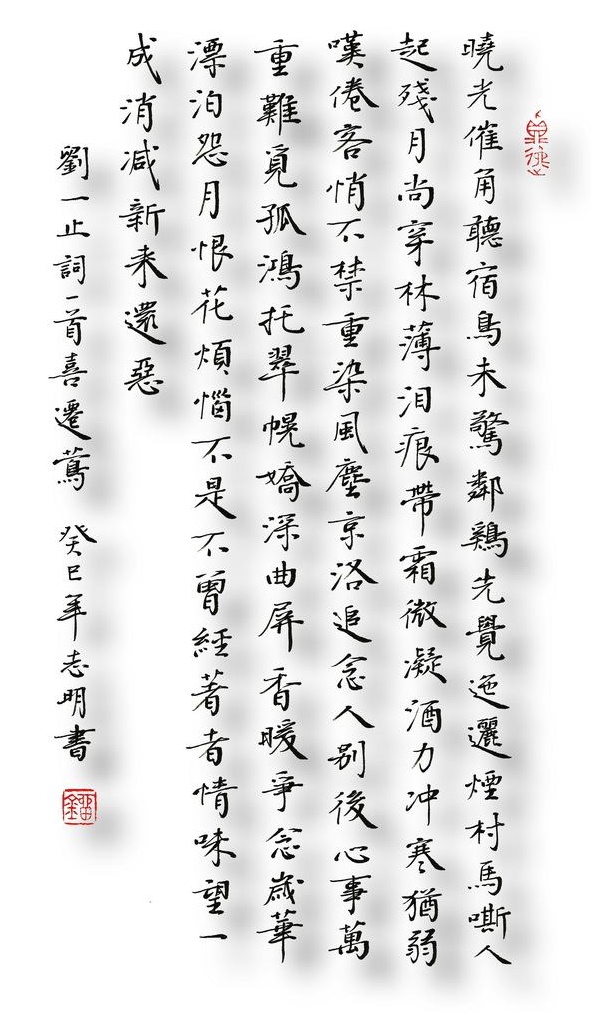 曉光催角聽宿鳥未驚鄰鷄先覺迤邐煙村馬嘶人
起殘月尚穿林薄泪痕帶霜微凝酒力冲寒猶弱
嘆倦客悄不禁重染風塵京洛追念人别後心事萬
重難覓孤鴻托翠幌嬌深曲屏香暖爭念歲華
漂泊怨月恨花煩惱不是不曾經著者情味望一
成消减新来還惡
劉一止詞一首喜遷鶯 癸巳年志明書